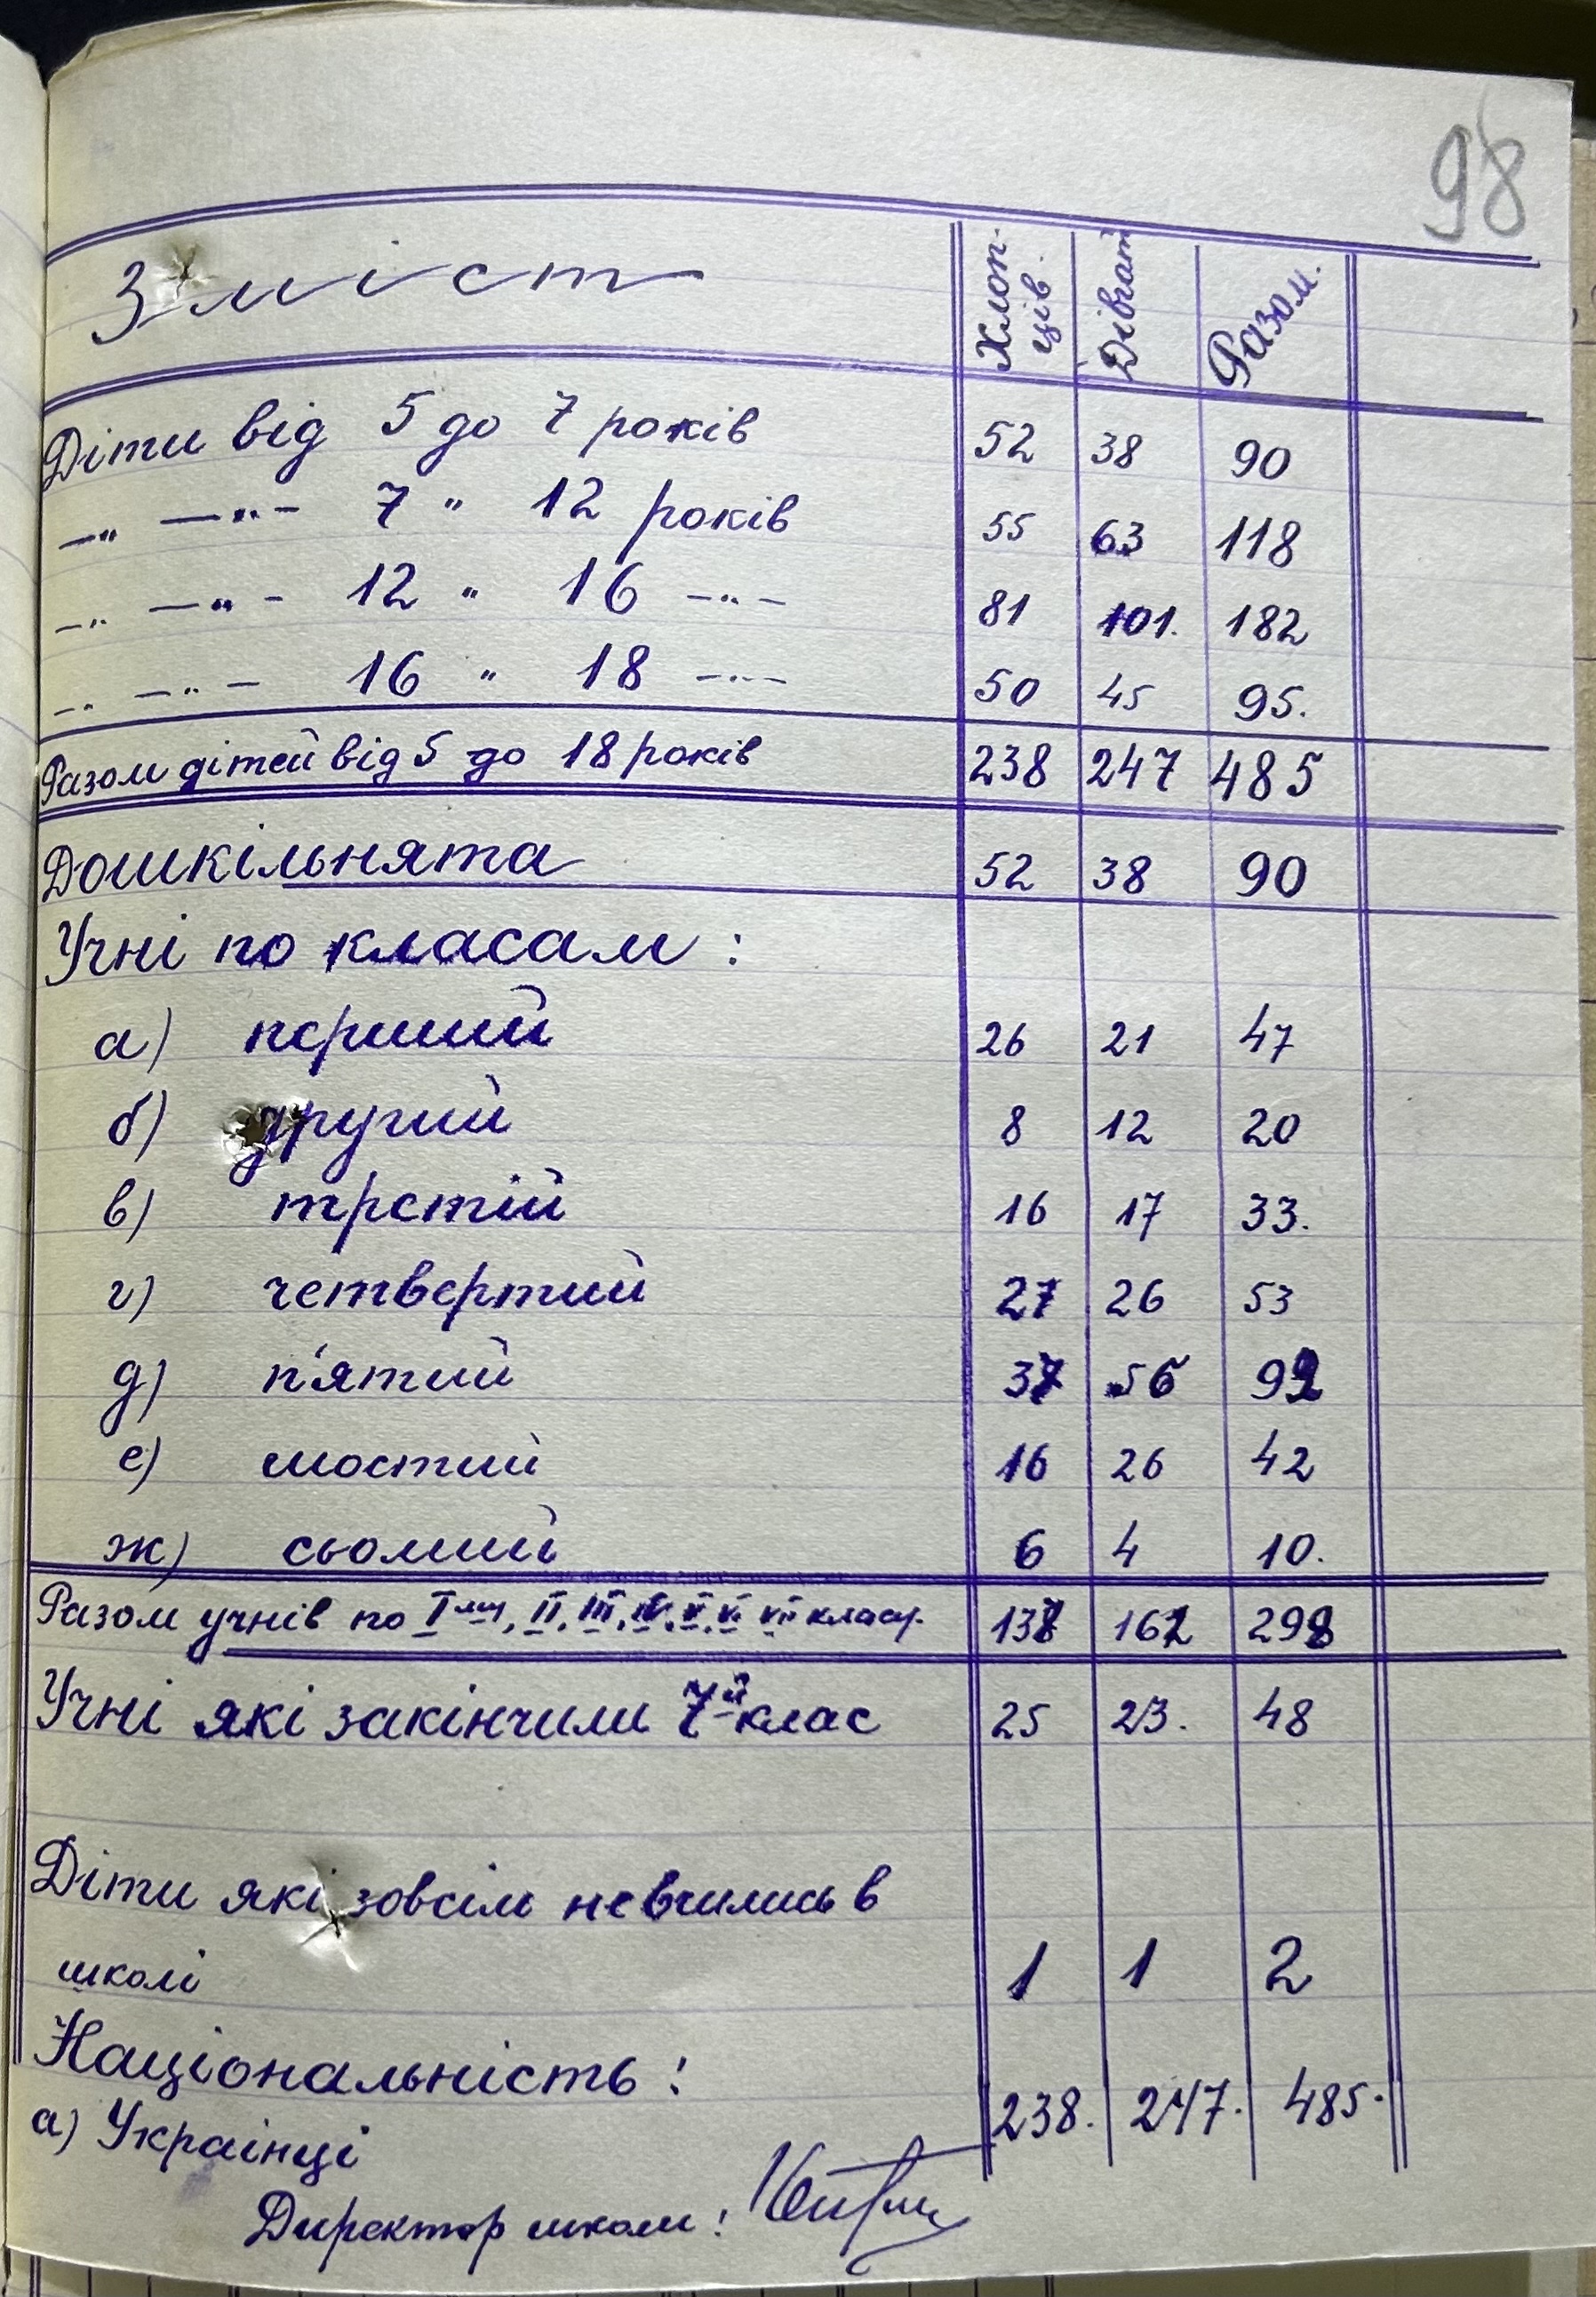 98
Зміст Хлоп- Дівчат Разом.
ців.
Діти від 5 до 7 років 52 38 90
—„ —„— 7 „ 12 років 55 63 118
—„ —„— 12 „ 16 —„— 81 101. 182
—„ —„— 16 „ 18 —„— 50 45 95.
Разом дітей від 5 до 18 років 238 247 485
Дошкільнята 52 38 90
Учні по класам:
а) перший 26 21 47
б) другий 8 12 20
в) третій 16 17 33.
г) четвертий 27 26 53
д) п'ятий 37 56 92
е) шостий 16 26 42
ж) сьомий 6 4 10.
Разом учнів по I, II, III, IV, V, VI VII класу. 162 298
Учні які закінчили 7й клас 25 23. 48
Діти які зовсім невчились в
школі 1 1 2
Національність:
а) Украінці 238. 247. 485.
Директор школи: